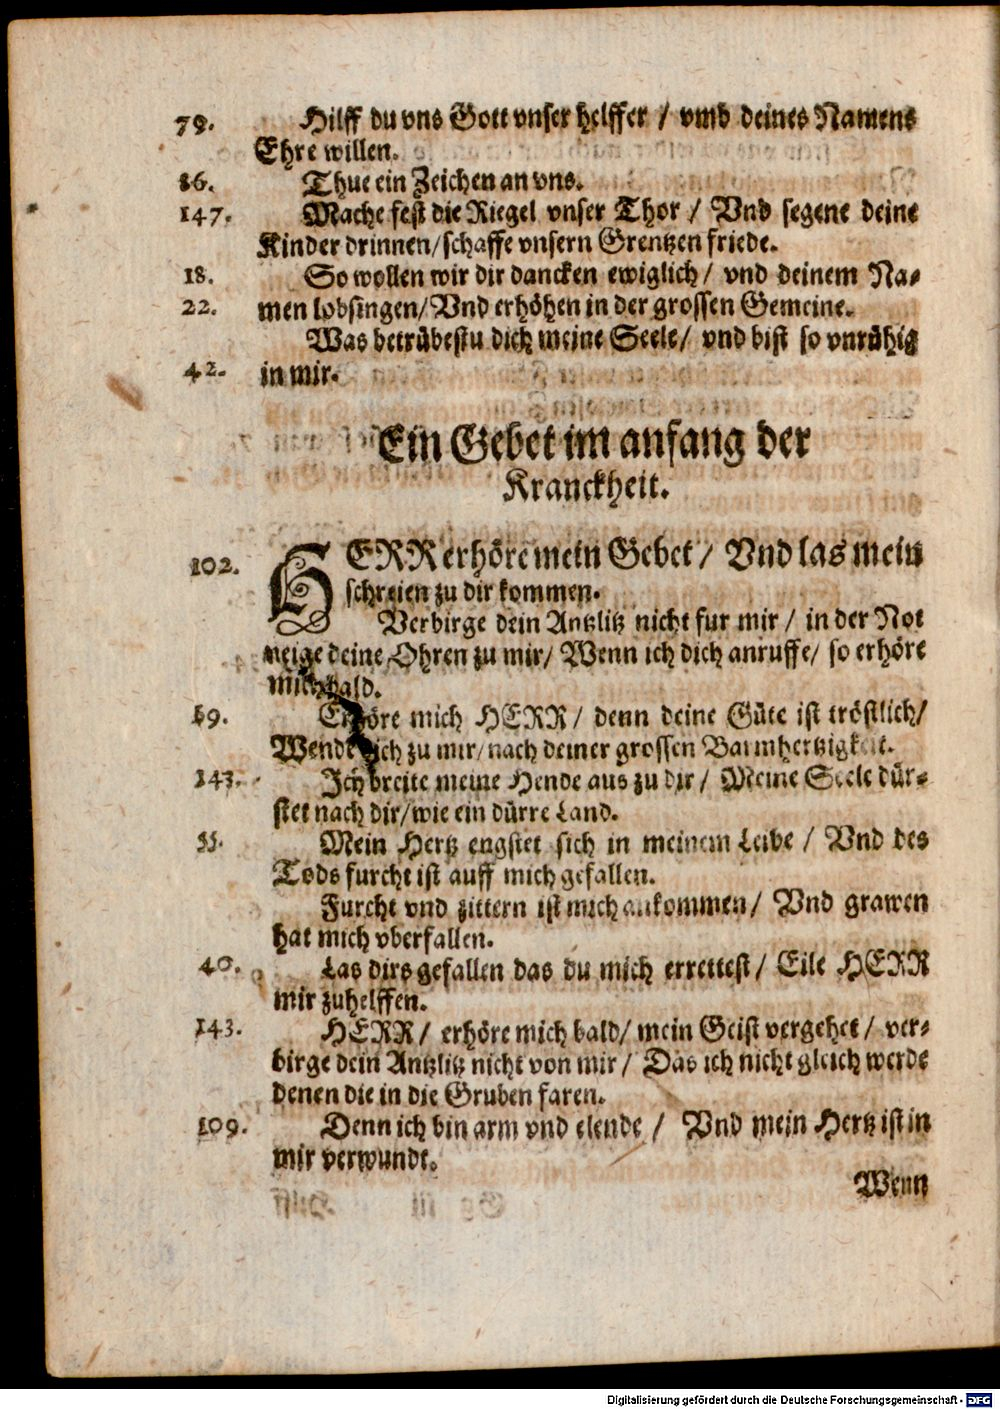 79. Hilff du vns Gott vnser helffer / vmb deines Namens
Ehre willen.
86. Thue ein Zeichen an vns.
147. Mache fest die Riegel vnser Thor / Vnd segene deine
Kinder drinnen/schaffe vnsern Grentzen friede.
18. So wollen wir dir dancken ewiglich / vnd deinem Na-
22. men lobsingen/Vnd erhöhen in der grossen Gemeine.
Was betrübestu dich meine Seele/ vnd bist so vnrühig
42. in mir.
Ein Gebet im anfang der
Kranckheit.
102. HERR erhöre mein Gebet / Vnd las mein
schreien zu dir kommen.
Verbirge dein Antzlitz nicht fur mir / in der Not
neige deine Ohren zu mir/ Wenn ich dich anruffe/ so erhöre
mich bald.
69. Erhöre mich HERR / denn deine Güte ist tröstlich/
Wende dich zu mir/nach deiner grossen Barmhertzigkeit.
143. Ich breite meine Hende aus zu dir / Meine Seele dür-
stet nach dir/wie ein dürre Land.
55. Mein Hertz engstet sich in meinem Leibe / Vnd des
Tods furcht ist auff mich gefallen.
Furcht vnd zittern ist mich ankommen/ Vnd grawen
hat mich vberfallen.
40. Las dirs gefallen das du mich errettest/ Eile HERR
mir zuhelffen.
143. HERR / erhöre mich bald/ mein Geist vergehet / ver-
birge dein Antzlitz nicht von mir / Das ich nicht gleich werde
denen die in die Gruben faren.
109. Denn ich bin arm vnd elende / Vnd mein Hertz ist in
mir verwundt.
Wenn
Digitalisierung gefördert durch die Deutsche Forschungsgemeinschaft - DFG